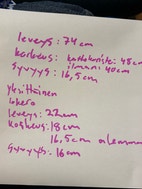 leveys: 74 cm
korkeus: 48cm
ilman: 40cm
syvyys: 16,5cm
Yksittäinen
lokero
leveys: 22cm
korkeus: 18cm
16,5cm
syvyys: 16cm